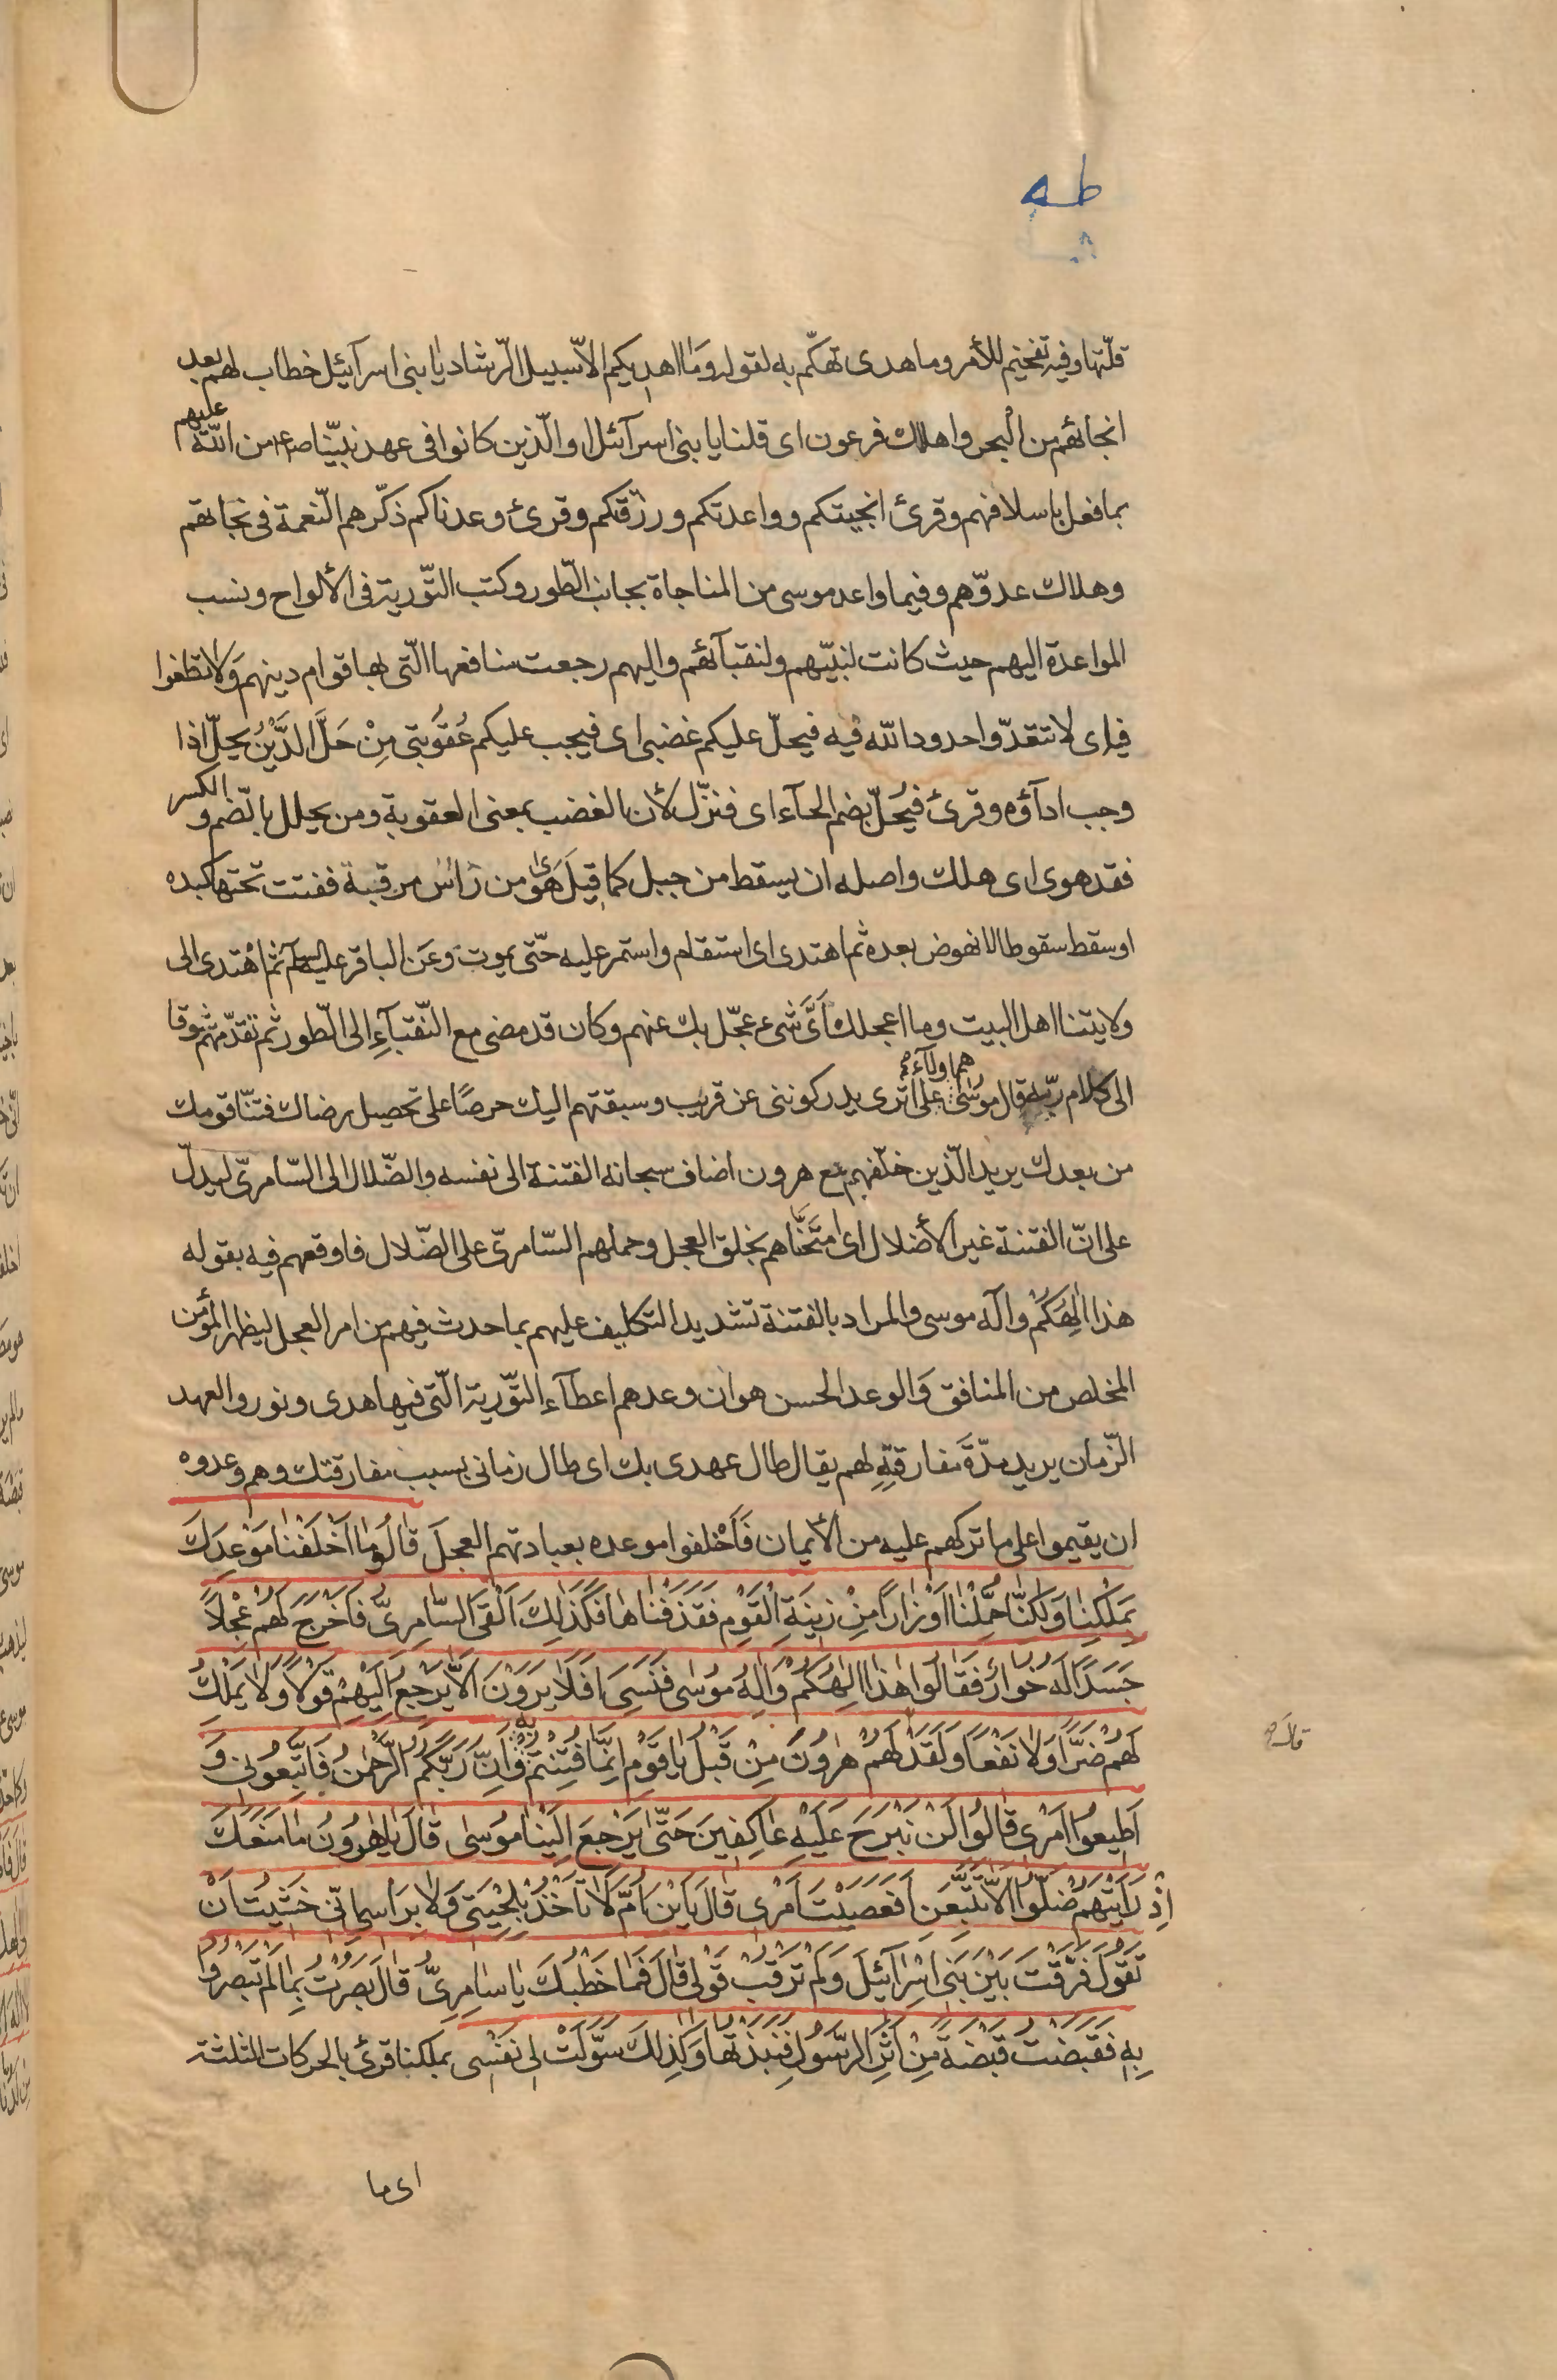 طه
قلّتها وفيه تفخيم للأمر وما هدى تهكّم به لقوله وَمٰا اهديكم الاّ سبيل الرّشاد يٰا بنى اسرآئيل خطاب لهم بعد
انجائهم من البحر واهلاك فرعون اى قلنا يا بنى اسرآئيل او الّذين كانوا فى عهد نبيّنا صلعم من اللّه عليهم
بما فعل باسلافهم وقرئ انجيتكم وواعدتكم ورزقتكم وقرئ وعدناكم ذكّرهم النّعمة فى نجاتهم
وهلاك عدوّهم وفيما واعد موسى من المناجاة بجانب الطّور وكتب التّورية فى الألواح ونسب
المواعدة اليهم حيث كانت لنبيّهم ولنقبآئهم واليهم رجعت منافعها الّتى بها قوام دينهم وَلا تطغوا
فيه اى لا تتعدّوا حدود اللّه فيه فيحلّ عليكم غضبى اى فيجب عليكم عُقُوبَتى مِنْ حَلَّ الدَّيْنُ يحلّ اذا
وجب ادآؤه وقرئ فيَحُلّ بضم الحآء اى فنزّل لأن الغضب بمعنى العقوبة ومن يحلل بالضّم والكسر
فقد هوى اى هلك واصله ان يسقط من جبل كما قِيلَ هَوىٰ من رَأس مرقبة ففتت تحتها كبده
او سقط سقوطا لا نهوض بعده ثم اهتدى اى استقام واستمر عليه حتّى يموت وعَن الباقر عليه السلام ثُمَّ اهْتدى الى
ولايتنا اهل البيت وما اعجلك أَىّ شَىء عجّل بك عنهم وكان قد مضى مع النّقبآءِ الى الطّور ثم تقدّمهم شوقا
الى كلام ربّه قال موسٰى هم اولآء على اثرى يدركوننى عن قريب وسبقتهم اليك حرصًا على تحصيل رضاك فتنّا قومك
من بعدك يريد الّذين خلّفهم مع هرون اضاف سبحانه الفتنة الى نفسه والضّلال الى السّامرىّ ليدلّ
على انّ الفتنة غير الأضلال اى امتَحَنّاهم بخلق العجل وحملهم السّامرىّ على الضّلال فاوقعهم فيه بقوله
هذا اِلٰهُكُمْ وآله موسى والمراد بالفتنة تشديد التكليف عليهم بما حدث فيهم من امر العجل ليظهر المؤمن
المخلص من المنافق وَالوعد الحسن هو ان وعدهم اعطآء التّورية الّتى فيها هدى ونور والعهد
الزّمان يريد مدّةَ مفارقتِهِ لهم يقال طال عهدى بك اى طال زمانى بسبب مفارقتك وهم وعدوه
ان يقيموا على ما تركهم عليه من الأيمان فَأَخْلفوا موعده بعبادتهم العجلَ قٰالُوا مٰا اَخْلَفْنٰا مَوْعِدَكَ
بِمَلْكِنٰا وَلٰكِنّٰا حُمِّلْنٰا اَوْزٰاراً مِنْ زينَةِ الْقَوْمِ فَقَذَفْنٰاهٰا فَكَذٰلِكَ اَلْقَى السّٰامِرِىُّ فَاَخْرَجَ لَهُمْ عِجْلاً
جَسَدًا لَهُ خُوٰارٌ فَقٰالُوا هٰذٰا اِلٰهُكُمْ وَاِلٰهُ مُوسٰى فَنَسِىَ اَفَلاٰ يَرَوْنَ اَلاّٰ يَرْجِعُ اِلَيْهِمْ قَوْلاً وَلاٰ يَمْلِكُ
لَهُمْ ضَرًّا وَلاٰ نَفْعًا وَلَقَدْ لَهُمْ هٰرُونُ مِنْ قَبْلُ يٰا قَوْمِ اِنَّمٰا فُتِنْتُمْ بِهِ وَاِنَّ رَبَّكُمُ الرَّحْمٰنُ فَاتَّبِعُونى وَ
قالَ صح
اَطيعُوا اَمْرى قٰالُوا لَنْ نَبْرَحَ عَلَيْهِ عٰاكِفينَ حَتّٰى يَرْجِعَ اِلَيْنٰا مُوسٰى قٰالَ يٰا هٰرُونُ مٰا مَنَعَكَ
اِذْ رَاَيْتَهُمْ ضَلُّوا اَلاّٰ تَتَّبِعَنِ اَفَعَصَيْتَ اَمْرى قٰالَ يَا بْنَ اُمَّ لاٰ تَأْخُذْ بِلِحْيَتى وَلاٰ بِرَأْسى اِنّى خَشيتُ اَنْ
تَقُولَ فَرَّقْتَ بَيْنَ بَنى اِسْرٰآئيلَ وَلَمْ تَرْقُبْ قَوْلى قٰالَ فَمٰا خَطْبُكَ يٰا سٰامِرِىُّ قٰالَ بَصُرْتُ بِمٰا لَمْ تَبْصُرُوا
بِهِ فَقَبَضْتُ قَبْضَةً مِنْ اَثَرِ الرَّسُولِ فَنَبَذْتُهٰا وَكَذٰلِكَ سَوَّلَتْ لى نَفْسى بملكنا قرئ بالحركات الثلثة
اى ما